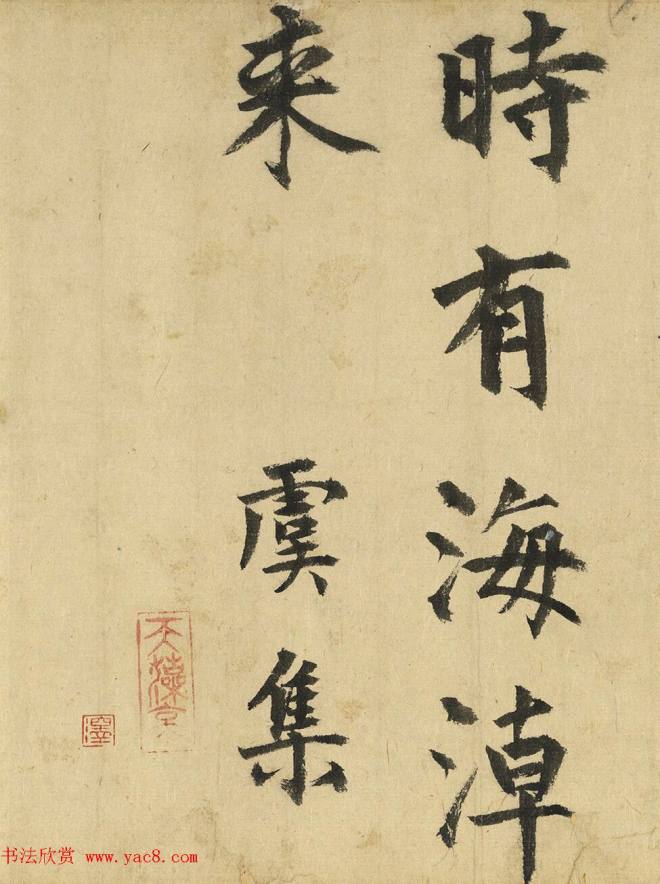 時有海淖
來 虞集
澤
书法欣赏 www.yac8.com